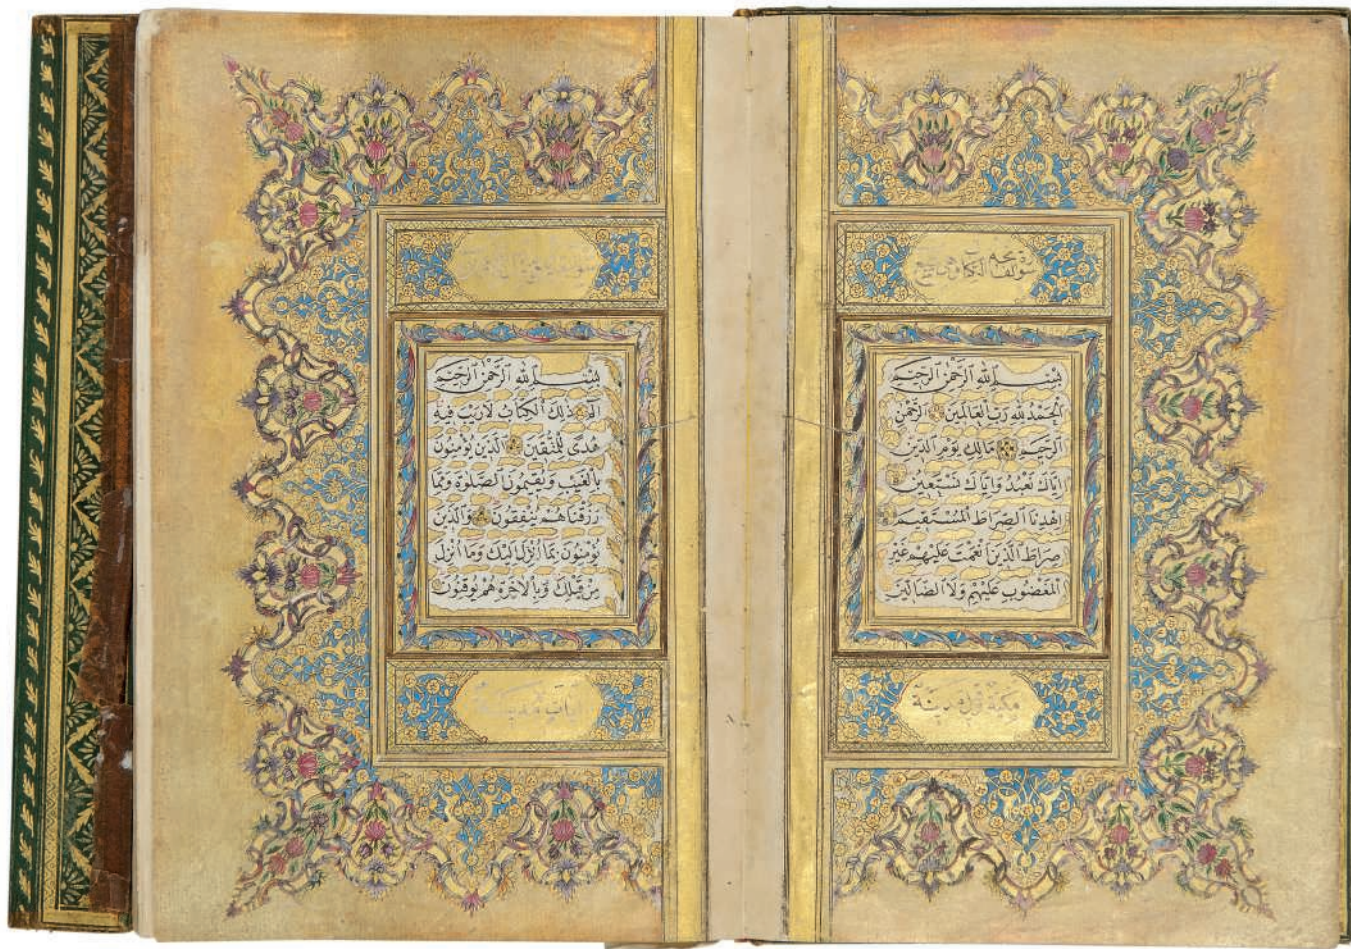 سورة فاتحة الكتاب وهي سبع
بِسْمِ اللهِ الرَّحْمٰنِ الرَّحِيمِ
اَلْحَمْدُ لِلّٰهِ رَبِّ الْعَالَمِينَ الرَّحْمٰنِ
الرَّحِيمِ مَالِكِ يَوْمِ الدِّينِ
اِيَّاكَ نَعْبُدُ وَاِيَّاكَ نَسْتَعِينُ
اِهْدِنَا الصِّرَاطَ الْمُسْتَقِيمَ
صِرَاطَ الَّذِينَ اَنْعَمْتَ عَلَيْهِمْ غَيْرِ
الْمَغْضُوبِ عَلَيْهِمْ وَلَا الضَّالِّينَ
مكية قيل مدنية
بِسْمِ اللهِ الرَّحْمٰنِ الرَّحِيمِ
الم ذٰلِكَ الْكِتَابُ لَا رَيْبَ فِيهِ
هُدًى لِلْمُتَّقِينَ اَلَّذِينَ يُؤْمِنُونَ
بِالْغَيْبِ وَيُقِيمُونَ الصَّلٰوةَ وَمِمَّا
رَزَقْنَاهُمْ يُنْفِقُونَ وَالَّذِينَ
يُؤْمِنُونَ بِمَا اُنْزِلَ اِلَيْكَ وَمَا اُنْزِلَ
مِنْ قَبْلِكَ وَبِالْاٰخِرَةِ هُمْ يُوقِنُونَ